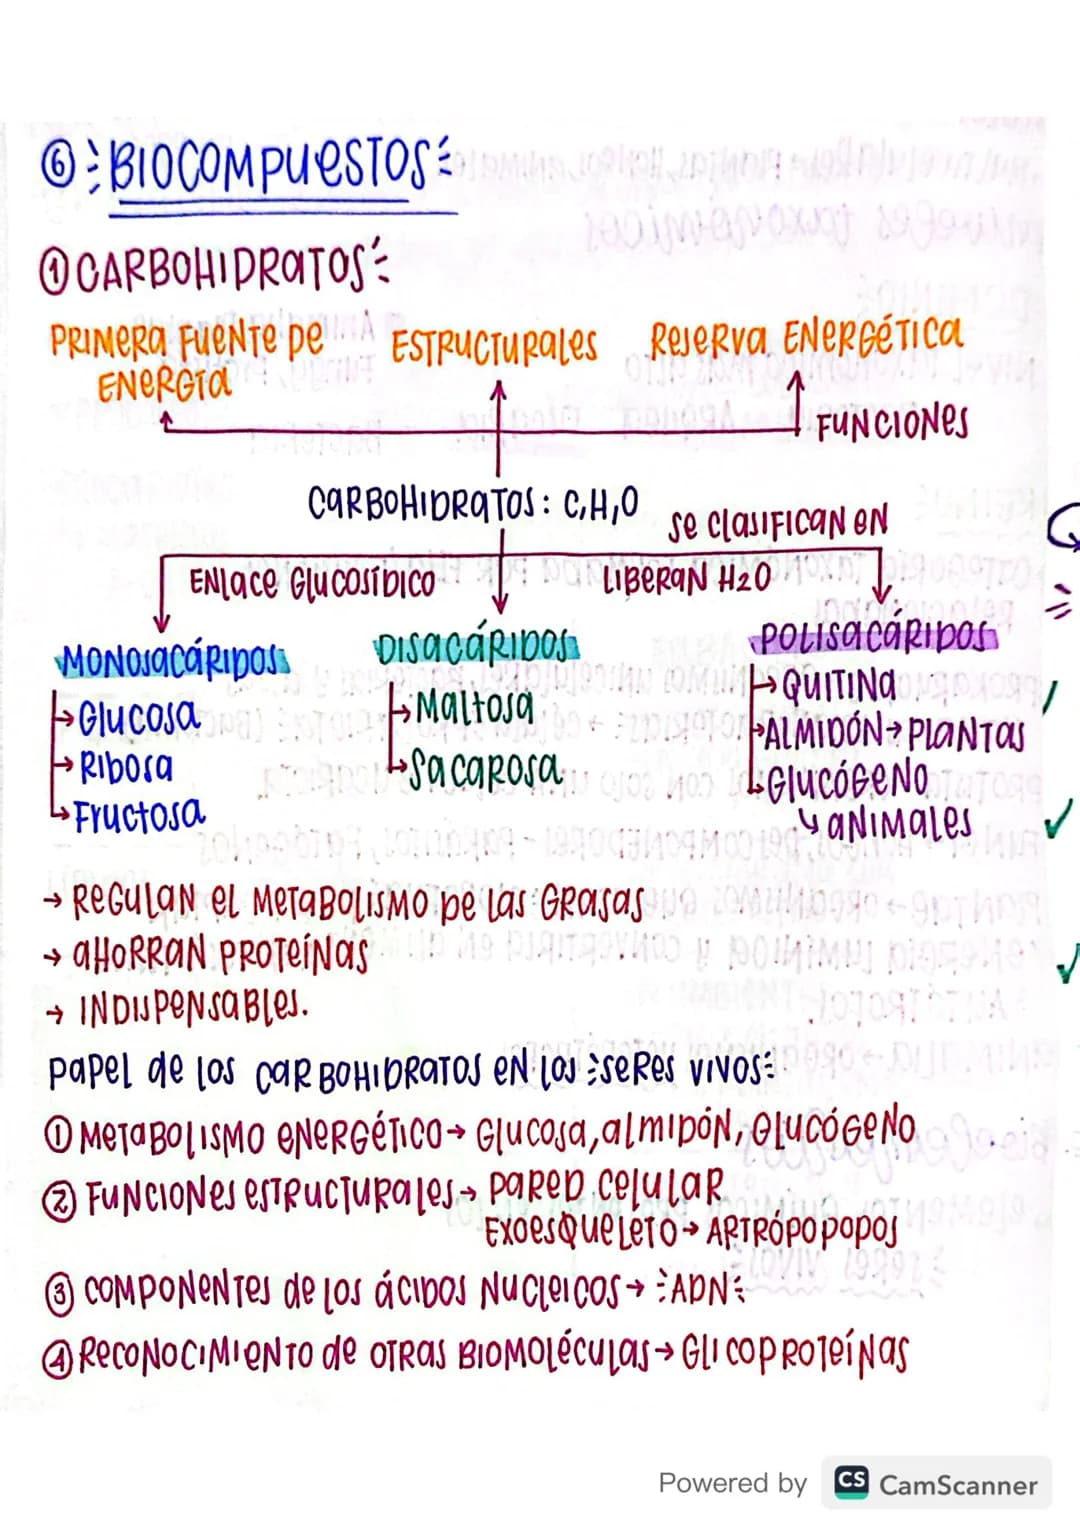 ⑥ BIOCOMPUESTOS
① CARBOHIDRATOS
PRIMERA FUENTE DE ENERGÍA
ESTRUCTURALES
RESERVA ENERGÉTICA
FUNCIONES
CARBOHIDRATOS: C,H,O
SE CLASIFICAN EN
ENLACE GLUCOSÍDICO
LIBERAN H2O
MONOSACÁRIDOS
→ Glucosa
→ Ribosa
→ Fructosa
DISACÁRIDOS
→ Maltosa
→ Sacarosa
POLISACÁRIDOS
→ QUITINA
→ ALMIDÓN → PLANTAS
→ GLUCÓGENO
↳ ANIMALES
→ REGULAN EL METABOLISMO DE LAS GRASAS
→ AHORRAN PROTEÍNAS
→ INDISPENSABLES.
PAPEL DE LOS CARBOHIDRATOS EN LOS SERES VIVOS:
① METABOLISMO ENERGÉTICO → GLUCOSA, ALMIDÓN, GLUCÓGENO
② FUNCIONES ESTRUCTURALES → PARED CELULAR
EXOESQUELETO → ARTRÓPODODOS
③ COMPONENTES DE LOS ÁCIDOS NUCLEICOS → ADN
④ RECONOCIMIENTO DE OTRAS BIOMOLÉCULAS → GLICOPROTEÍNAS
Powered by CS CamScanner